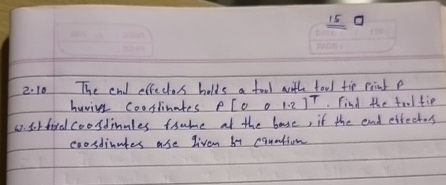 15
2.10 The end effectors holds a tool with tool tip Point P
having coordinates P [0 0 1.2]ᵀ. Find the tool tip
w.r.t coordinates frame at the base, if the end effectors
coordinates are given by equation